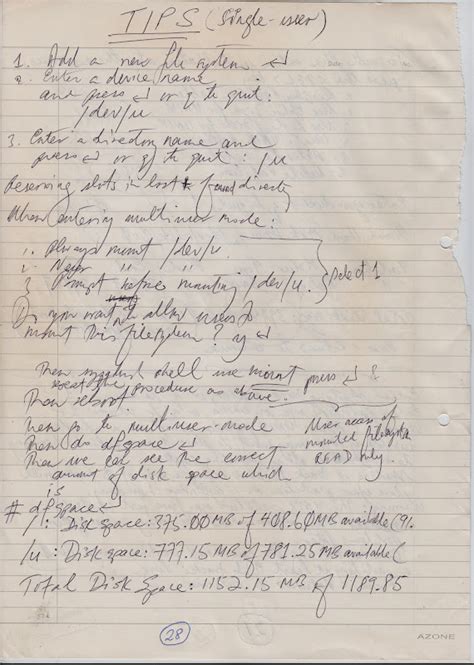 TIPS (Single-user)
1. Add a new file system ↵
2. Enter a device name
and press ↵ or q to quit:
/dev/u
3. Enter a directory name and
press ↵ or q to quit: /u
Reserving slots in lost + found directory
When entering multiuser mode:
1. Always mount /dev/u.
2. Never " "
3. Prompt before mounting /dev/u. } select 1
Do you want to allow users to
mount this filesystem? y ↵
Then shell use mount press ↵ &
the procedure as above.
Then reboot.
Then go to multiuser-mode
Then do dfspace ↵
Then we can see the correct
amount of disk space which
is
User access of
mounted filesystem
READ only.
# dfspace ↵
/ : Disk space: 375.00 MB of 408.60 MB available (91.
/u : Disk space: 777.15 MB of 781.25 MB available (
Total Disk Space: 1152.15 MB of 1189.85
28
AZONE